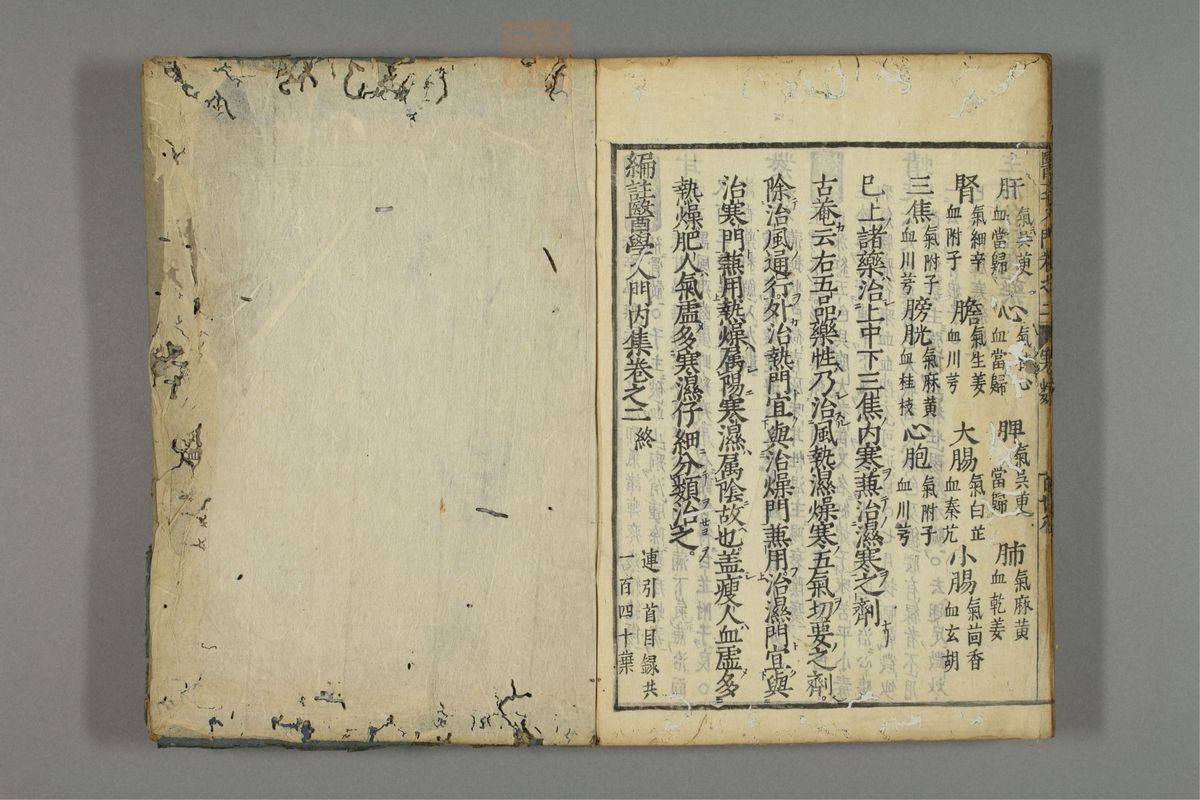 肝 氣吳茰 血當歸 心 血當歸 脾 氣吳茰 當歸 肺 氣麻黄 血乾姜
腎 氣細辛 血附子 膽 氣生姜 血川芎 大腸 氣白芷 血秦艽 小腸 氣茴香 血玄胡
三焦 氣附子 血川芎 膀胱 氣麻黄 血桂枝 心胞 氣附子 血川芎
已上諸藥治上中下三焦内寒兼治濕寒之劑
古菴云右五品藥性乃治風熱濕燥寒五氣切要之劑
除治風通行外治熱門宜與治燥門兼用治濕門宜與
治寒門兼用熱燥属陽寒濕属陰故也盖瘦人血虛多
熱燥肥人氣虛多寒濕仔細分類治之
連引首目録共
一百四十葉
編註醫學入門内集卷之二終